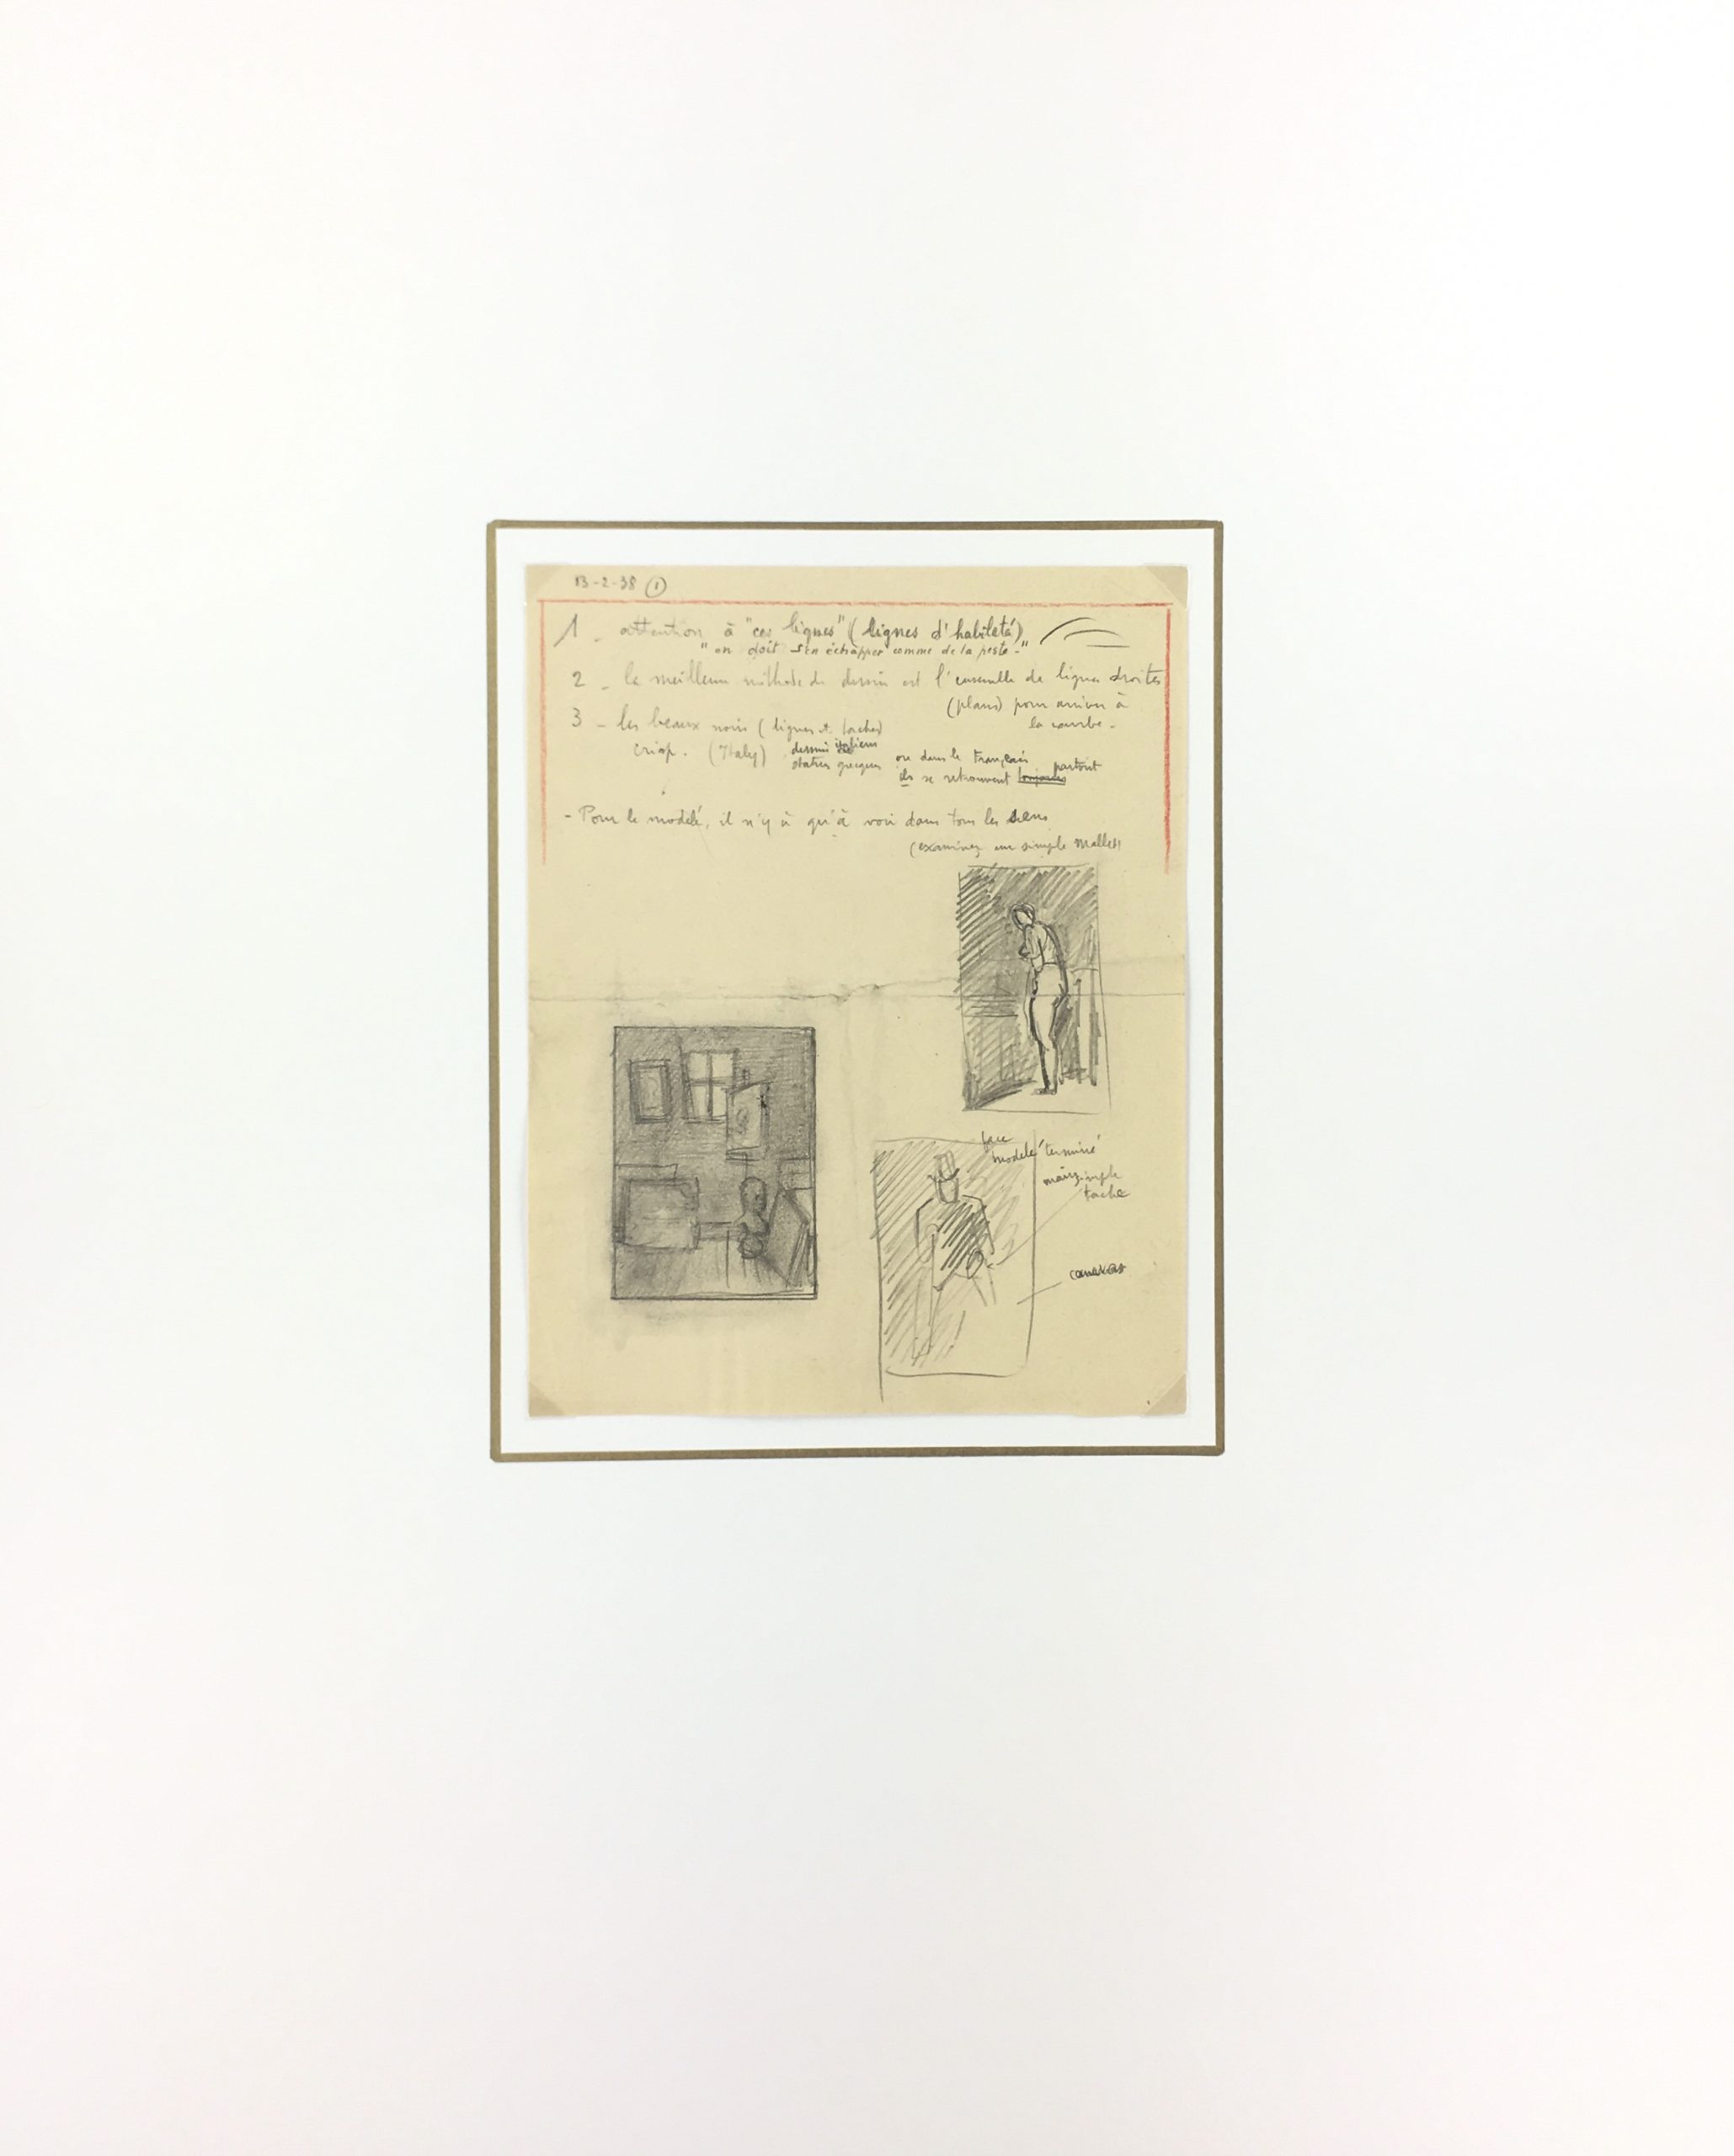 13-2-38 ①
1 - attention à "ces lignes" (lignes d'habileté)
"on doit s'en échapper comme de la peste."
2 - la meilleure méthode de dessin est l'ensemble de lignes droites
(plans) pour arriver à
la courbe.
3 - les beaux noirs (lignes et taches)
crisp. (Italy) dessins italiens
statues grecques ou dans le français
ils se retrouvent toujours partout
- Pour le modelé, il n'y à qu'à voir dans tous les sens
(examinez un simple
face
modelé terminé
main simple
tache
canvas